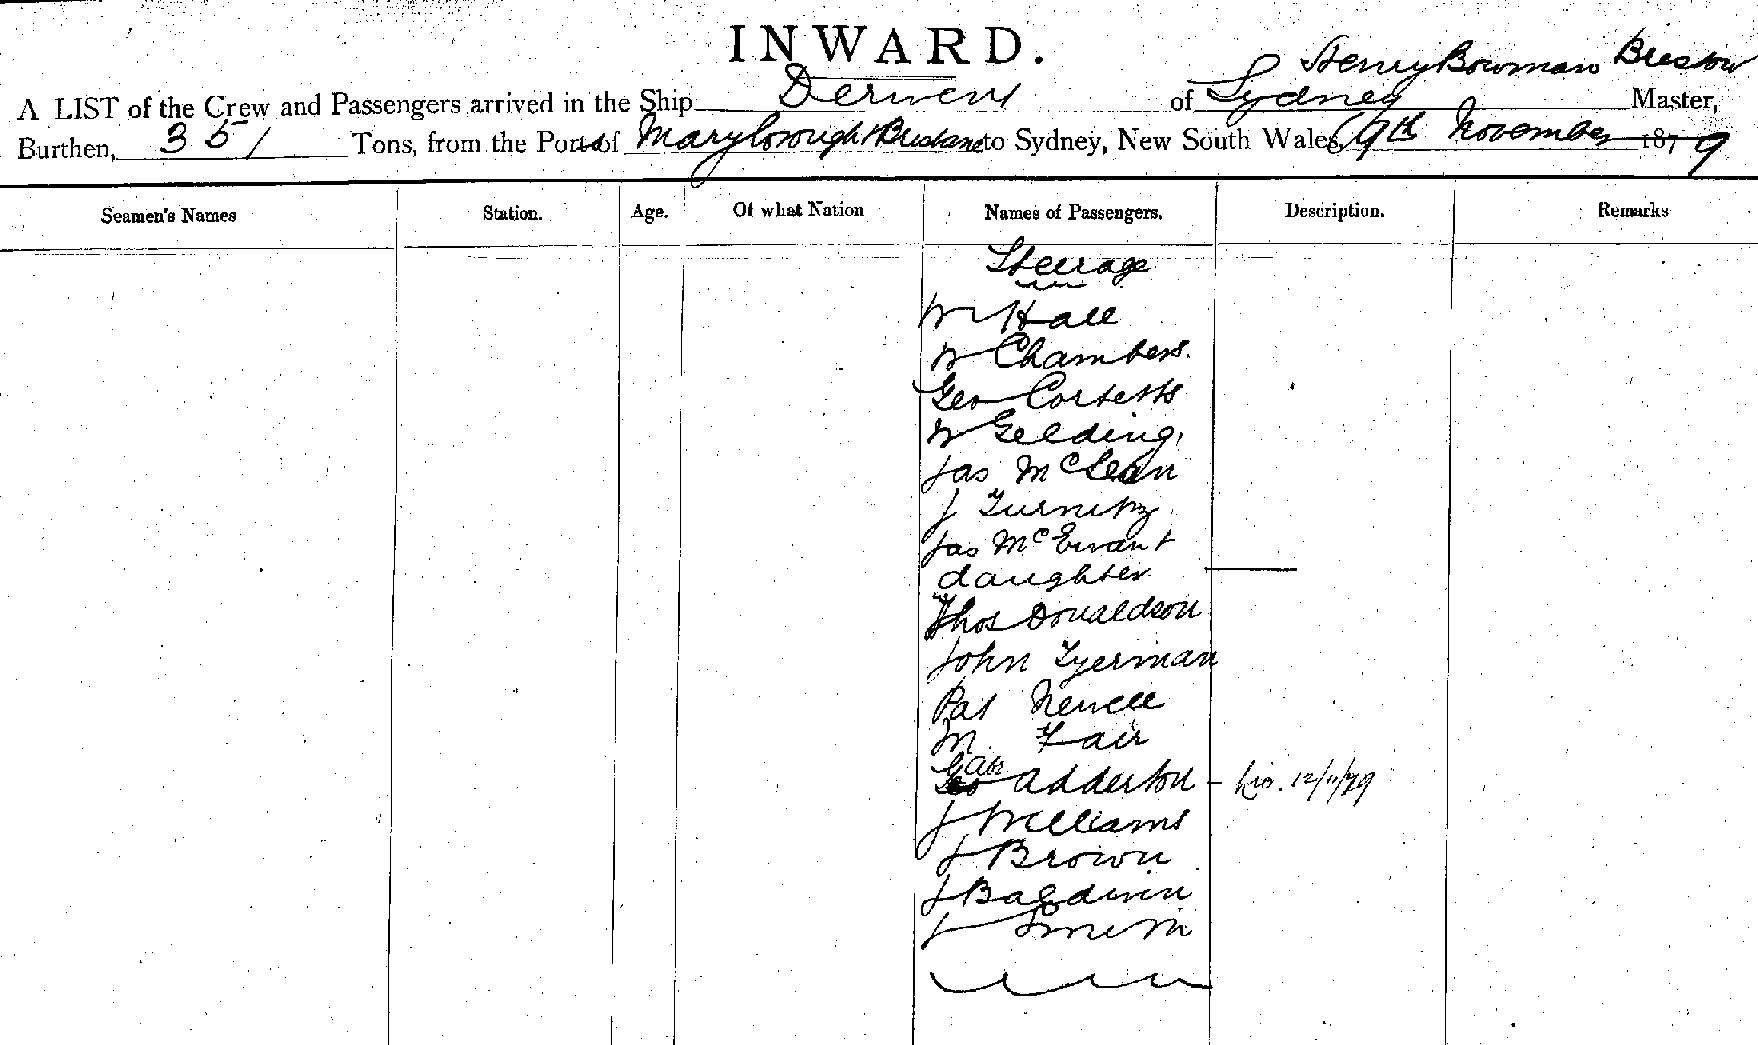 INWARD.
Henry Bowman Bristow
A LIST of the Crew and Passengers arrived in the Ship Derwent of Sydney Master,
Burthen, 351 Tons, from the Port of Maryborough & Brisbane to Sydney, New South Wales, 9th November 1879
Seamen's Names Station. Age. Of what Nation Names of Passengers. Description. Remarks
Steerage
W Hall
W Chambers.
Geo Corbett
W Gelding,
Jas McLean
J
Jas McEwan +
daughter
Thos Donaldson
John Tyerman
Pat Newell
M. Fair
Adderton - 12/11/79
J Williams
J Brown
J Baldwin
J Smith